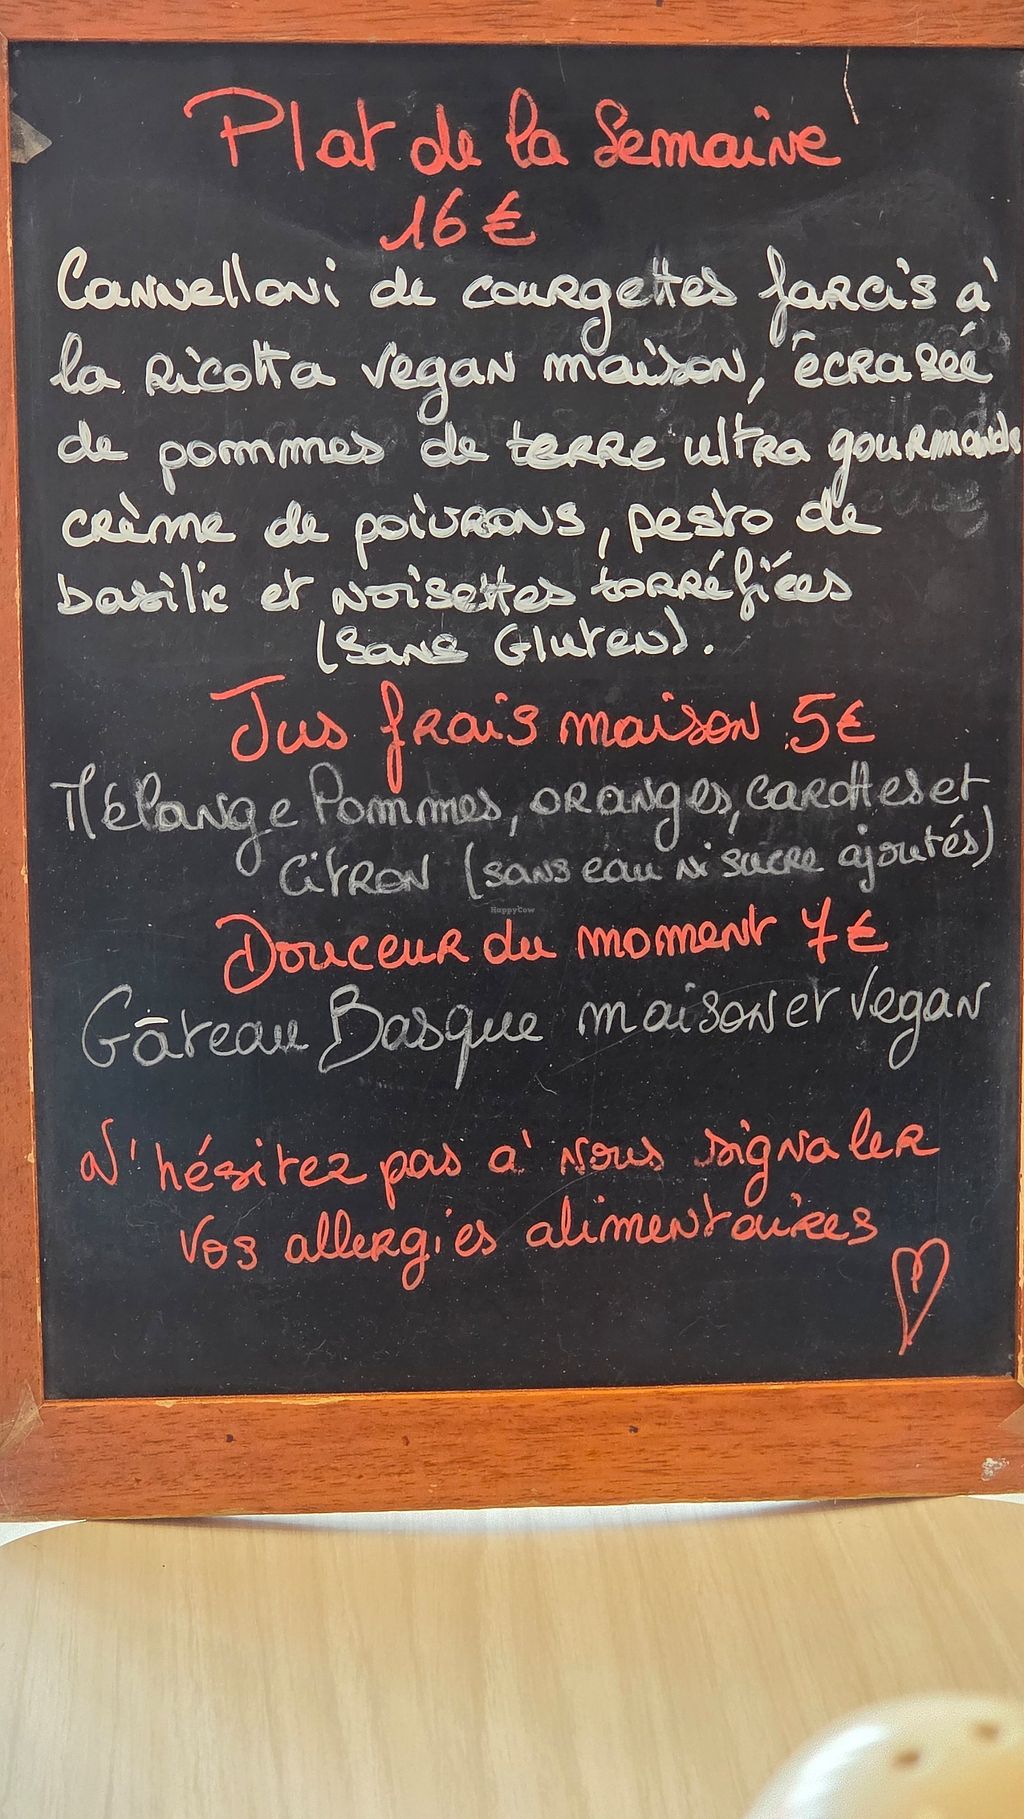 Plat de la Semaine
16€
Cannelloni de courgettes farcis à
la Ricotta vegan maison, écrasée
de pommes de terre ultra gourmande
crème de poivrons, pesto de
basilic et noisettes torréfiées
(Sans Gluten).
Jus frais maison 5€
Mélange Pommes, oranges, carottes et
citron (sans eau ni sucre ajoutés)
HappyCow
Douceur du moment 7€
Gâteau Basque maison et vegan
N'hésitez pas à nous signaler
vos allergies alimentaires